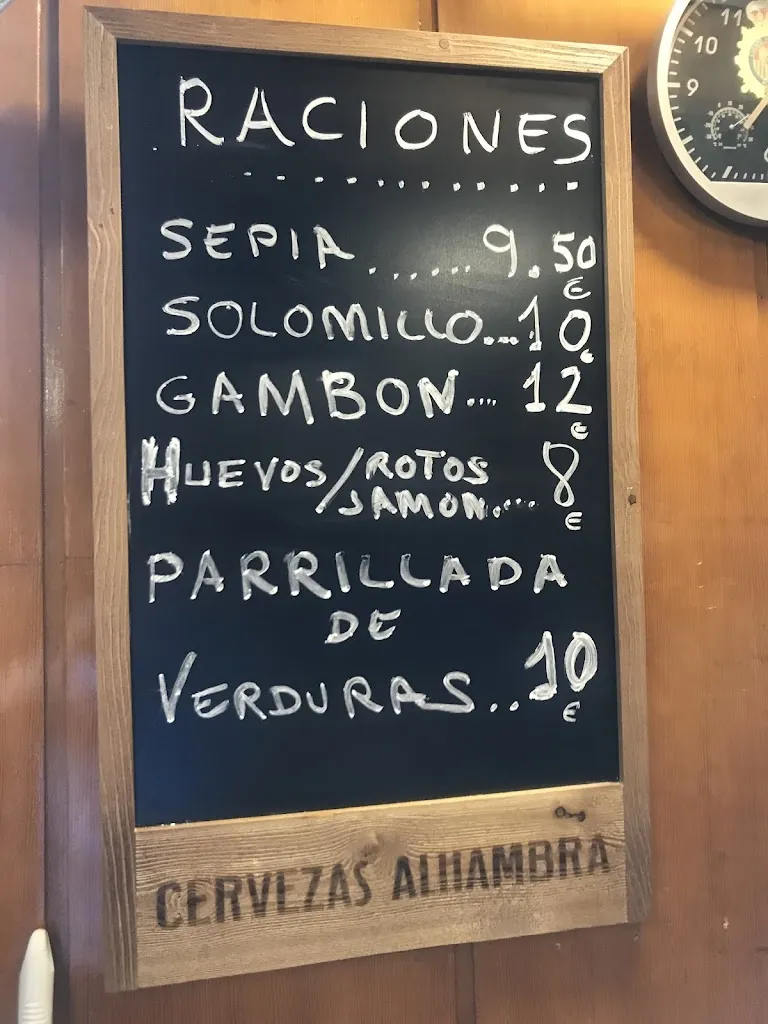 RACIONES
SEPIA ...... 9.50 €
SOLOMILLO... 10 €
GAMBON... 12 €
HUEVOS/ROTOS
JAMON..... 8 €
PARRILLADA
DE
VERDURAS.. 10 €
CERVEZAS ALHAMBRA
11
10
9